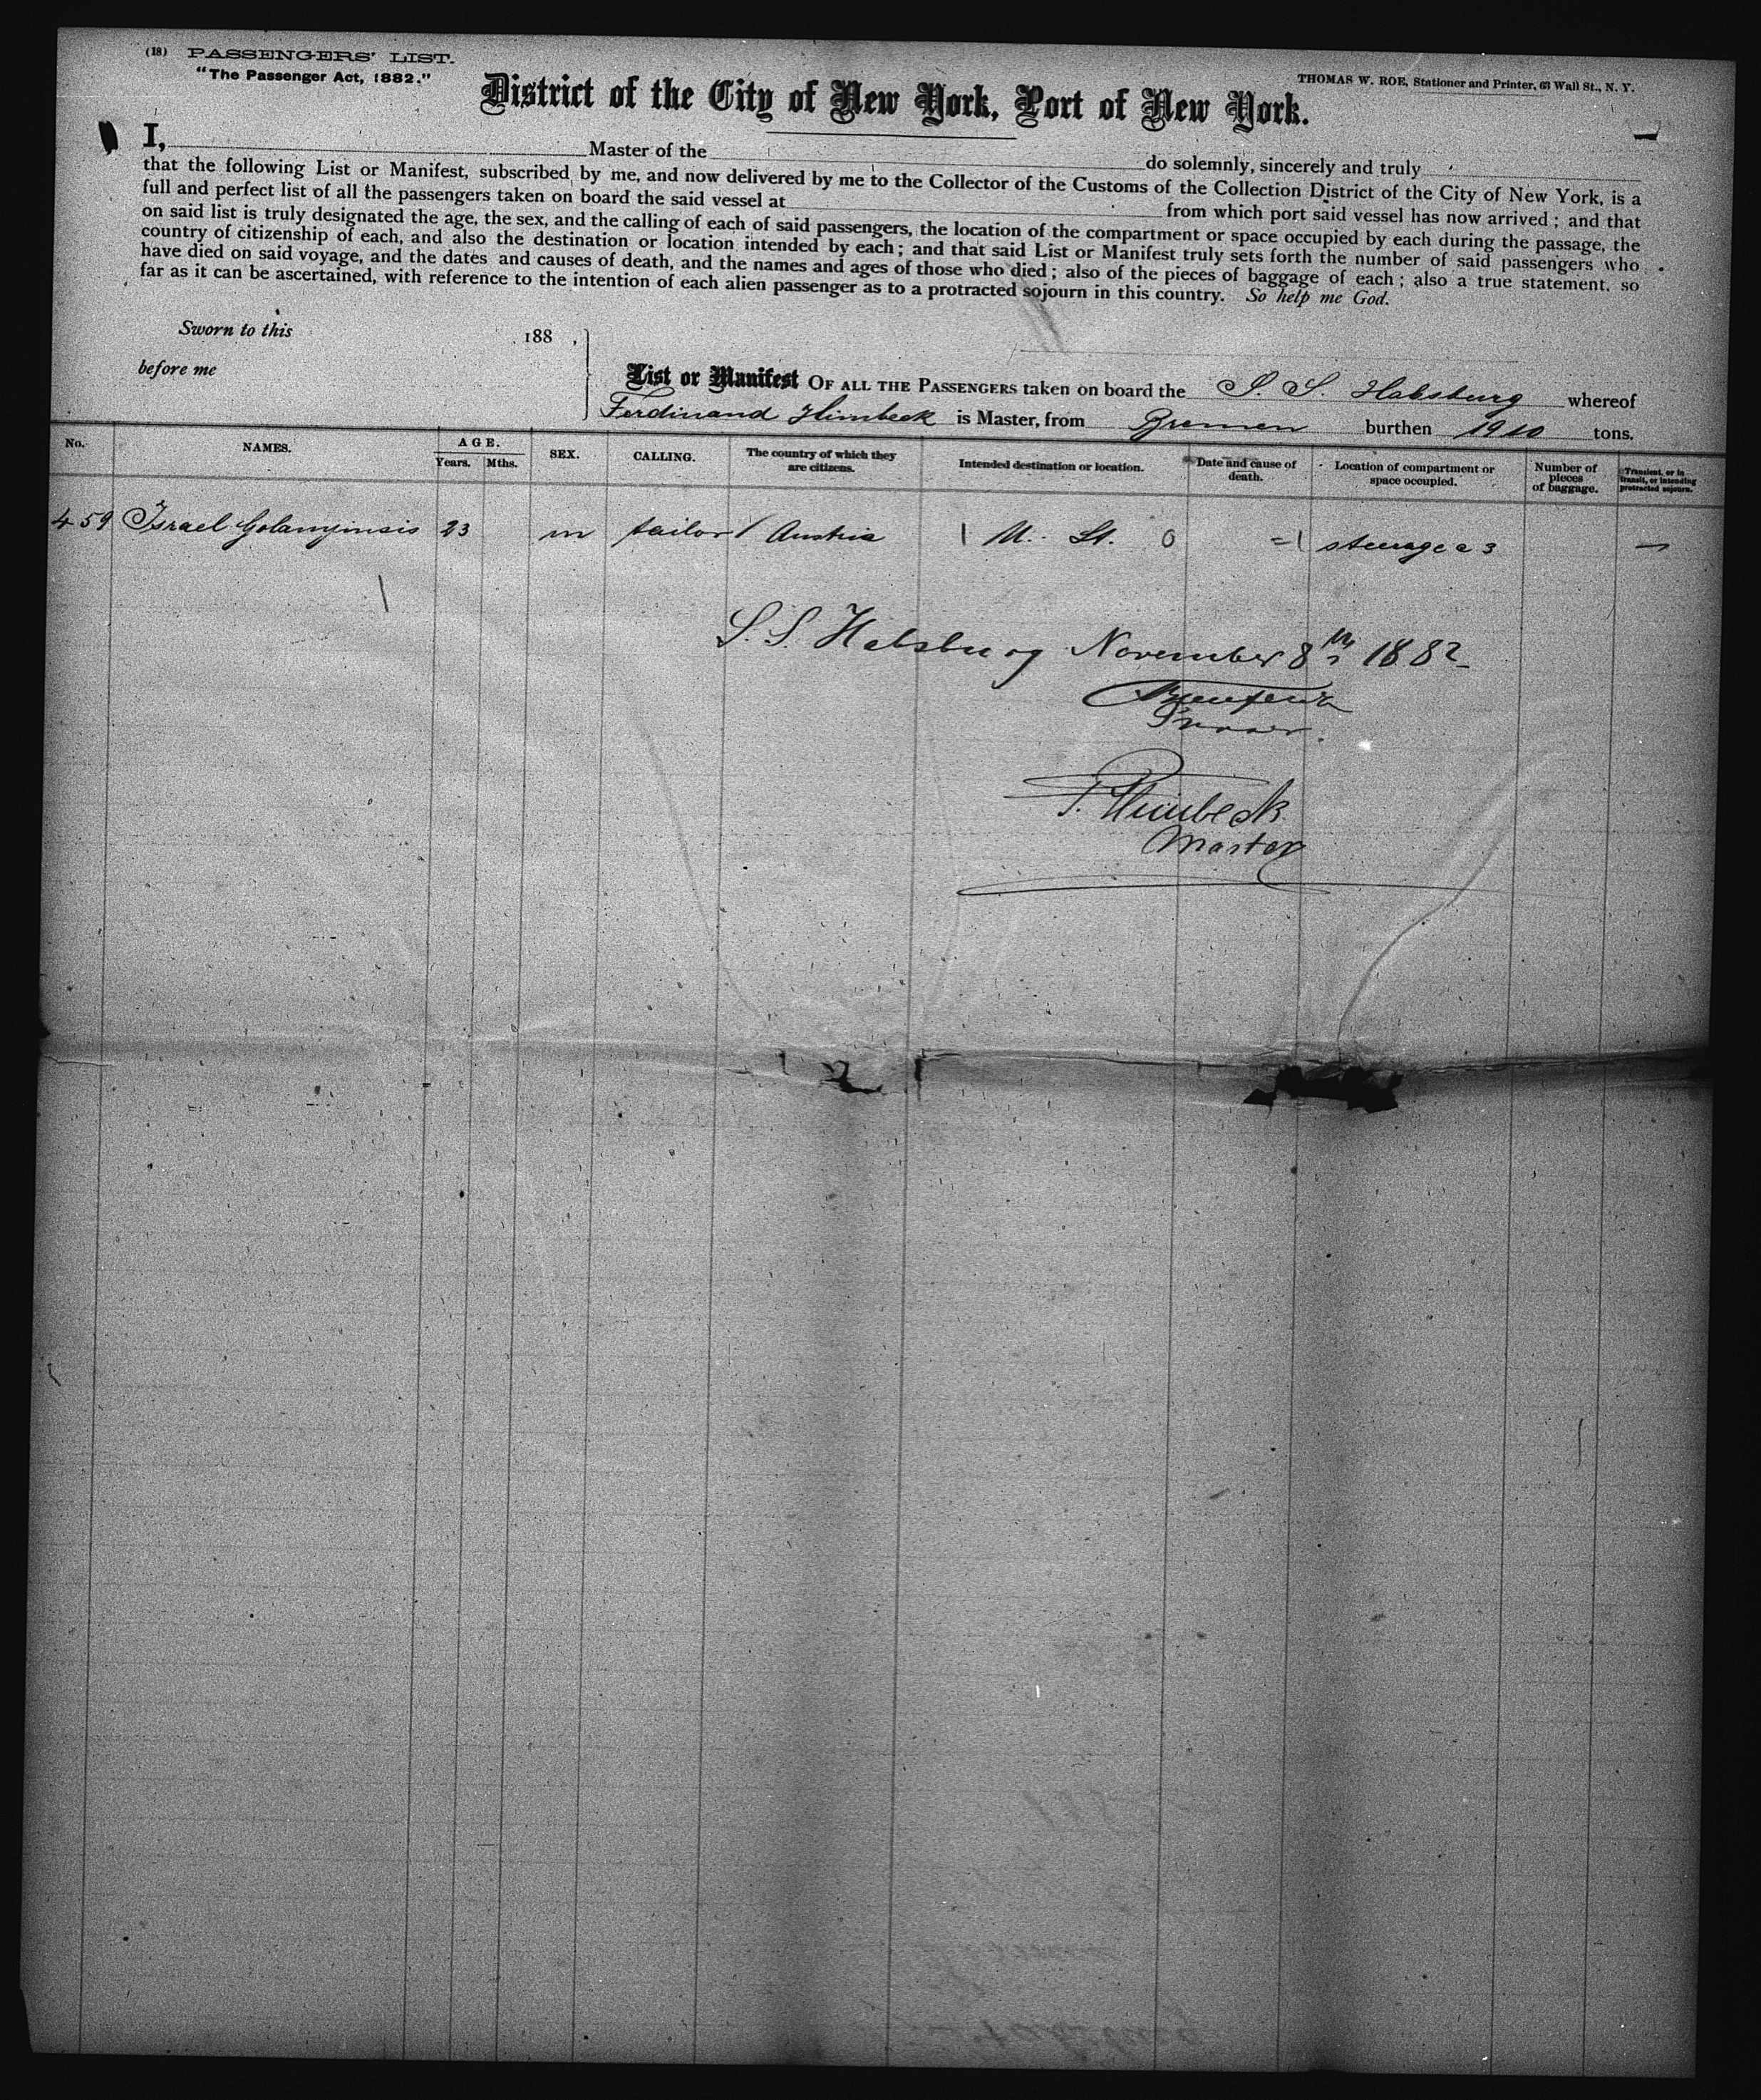 (18) PASSENGERS' LIST.
"The Passenger Act, 1882."
THOMAS W. ROE, Stationer and Printer, 63 Wall St., N. Y.
District of the City of New York, Port of New York.
I, Master of the do solemnly, sincerely and truly
that the following List or Manifest, subscribed by me, and now delivered by me to the Collector of the Customs of the Collection District of the City of New York, is a
full and perfect list of all the passengers taken on board the said vessel at from which port said vessel has now arrived; and that
on said list is truly designated the age, the sex, and the calling of each of said passengers, the location of the compartment or space occupied by each during the passage, the
country of citizenship of each, and also the destination or location intended by each; and that said List or Manifest truly sets forth the number of said passengers who
have died on said voyage, and the dates and causes of death, and the names and ages of those who died; also of the pieces of baggage of each; also a true statement, so
far as it can be ascertained, with reference to the intention of each alien passenger as to a protracted sojourn in this country. So help me God.
Sworn to this 188 ,
before me
List or Manifest OF ALL THE PASSENGERS taken on board the S. S. Habsburg whereof
Ferdinand Himbeck is Master, from Bremen burthen 1910 tons.
No. NAMES. AGE. Years. Mths. SEX. CALLING. The country of which they are citizens. Intended destination or location. Date and cause of death. Location of compartment or space occupied. Number of pieces of baggage. Transient, or in transit, or intending protracted sojourn.
459 Israel 23 m tailor Austria U. St. 0 steerage a 3 —
S. S. Habsburg November 8th 1882
F. Himbeck
Master